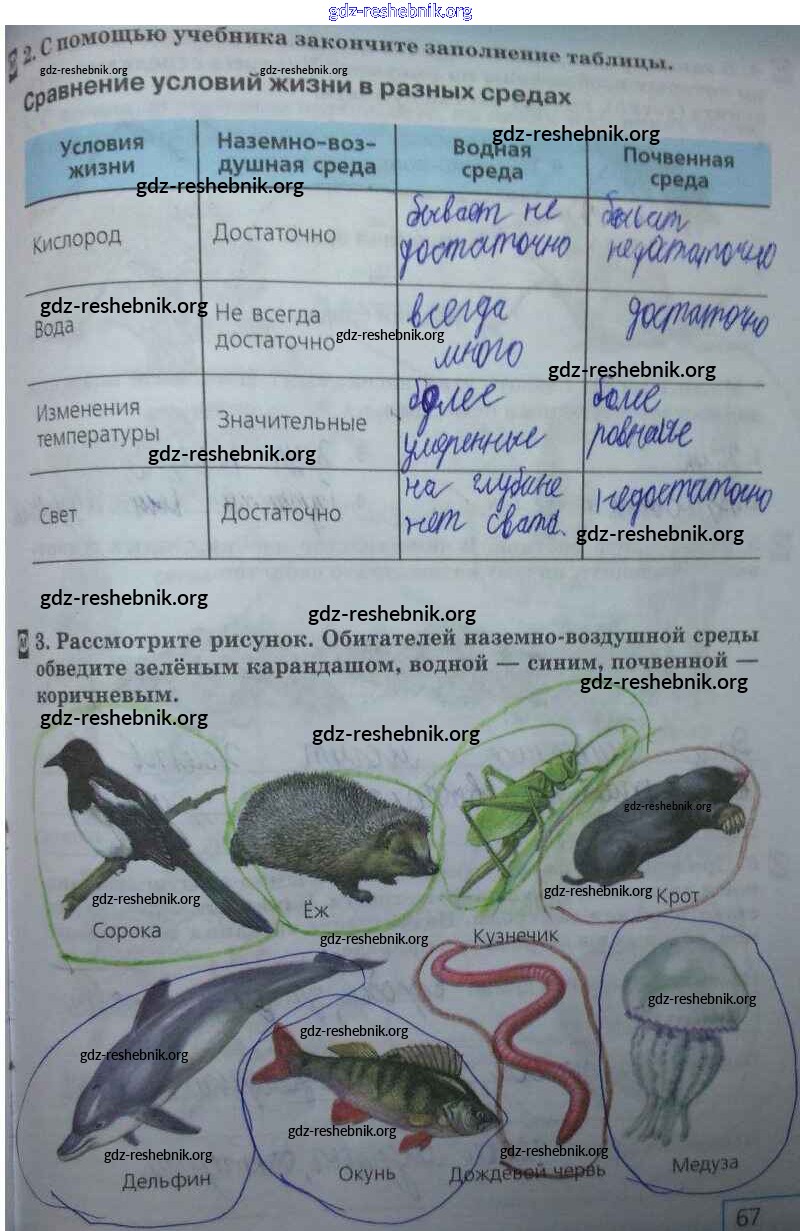 gdz-reshebnik.org
2. С помощью учебника закончите заполнение таблицы.
gdz-reshebnik.org gdz-reshebnik.org
Сравнение условий жизни в разных средах
gdz-reshebnik.org
Условия жизни
Наземно-воз-
душная среда
Водная
среда
Почвенная
среда
gdz-reshebnik.org
Кислород
Достаточно
бывает не
достаточно
бывает
недостаточно
gdz-reshebnik.org
Вода
Не всегда
достаточно
gdz-reshebnik.org
всегда
много
достаточно
gdz-reshebnik.org
Изменения
температуры
Значительные
более
умеренные
более
ровные
gdz-reshebnik.org
Свет
Достаточно
на глубине
нет света.
недостаточно
gdz-reshebnik.org
gdz-reshebnik.org
gdz-reshebnik.org
3. Рассмотрите рисунок. Обитателей наземно-воздушной среды
обведите зелёным карандашом, водной — синим, почвенной —
gdz-reshebnik.org
коричневым.
gdz-reshebnik.org
gdz-reshebnik.org
gdz-reshebnik.org
gdz-reshebnik.org gdz-reshebnik.org
Сорока
Ёж
Кузнечик
Крот
gdz-reshebnik.org
gdz-reshebnik.org
gdz-reshebnik.org
gdz-reshebnik.org
gdz-reshebnik.org
gdz-reshebnik.org gdz-reshebnik.org
Дельфин
Окунь
Дождевой червь
Медуза
67